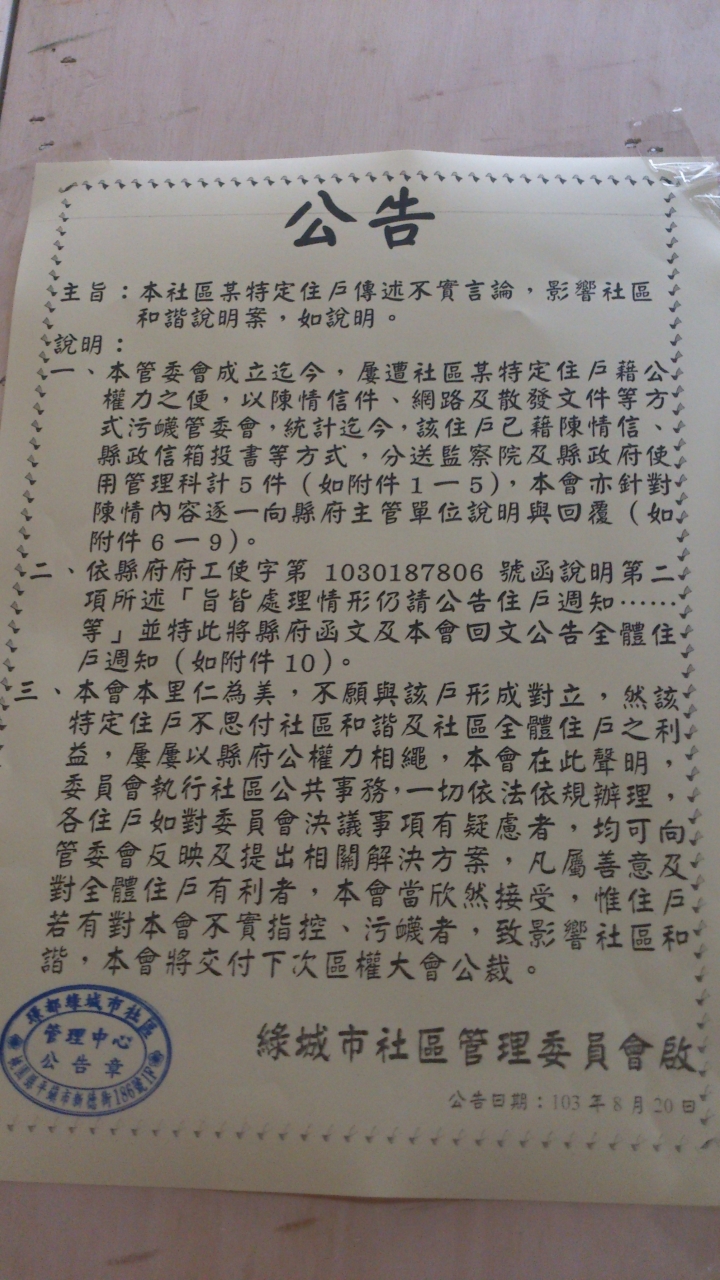 公告
主旨：本社區某特定住戶傳述不實言論，影響社區
和諧說明案，如說明。
說明：
一、本管委會成立迄今，屢遭社區某特定住戶藉公
權力之便，以陳情信件、網路及散發文件等方
式污衊管委會，統計迄今，該住戶已藉陳情信、
縣政信箱投書等方式，分送監察院及縣政府使
用管理科計5件（如附件1一5），本會亦針對
陳情內容逐一向縣府主管單位說明與回覆（如
附件6一9）。
二、依縣府府工使字第 1030187806 號函說明第二
項所述「旨皆處理情形仍請公告住戶週知……
等」並特此將縣府函文及本會回文公告全體住
戶週知（如附件10）。
三、本會本里仁為美，不願與該戶形成對立，然該
特定住戶不思付社區和諧及社區全體住戶之利
益，屢屢以縣府公權力相繩，本會在此聲明，
委員會執行社區公共事務，一切依法依規辦理，
各住戶如對委員會決議事項有疑慮者，均可向
管委會反映及提出相關解決方案，凡屬善意及
對全體住戶有利者，本會當欣然接受，惟住戶
若有對本會不實指控、污衊者，致影響社區和
諧，本會將交付下次區權大會公裁。
綠城市社區管理委員會啟
公告日期：103年8月20日
都綠城市社區
管理中心
公告章
平鎮市新德街186號1F